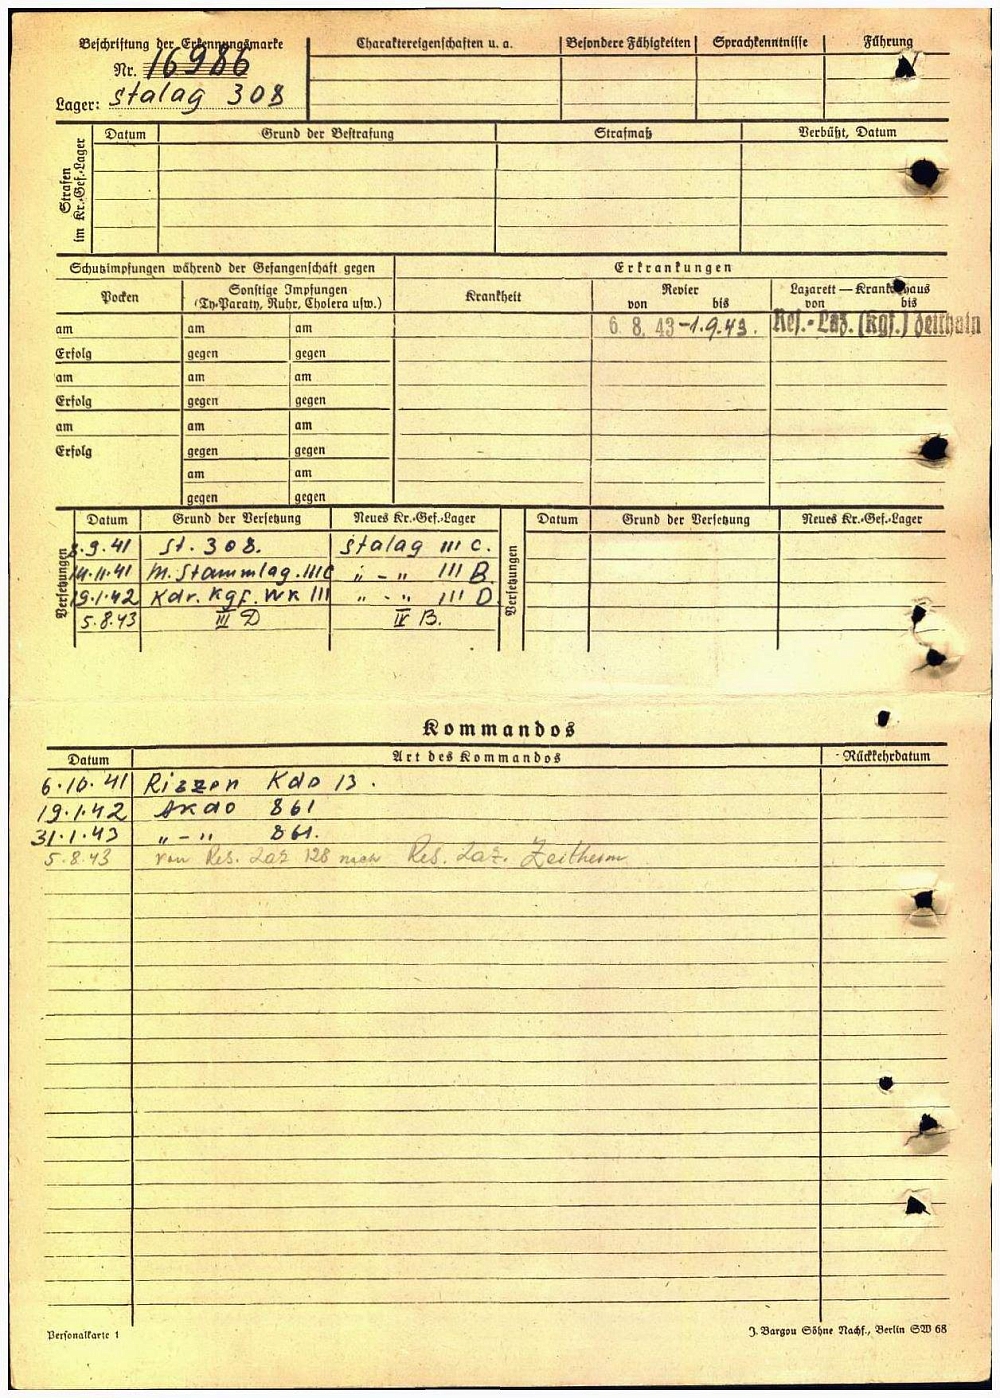 Beschriftung der Erkennungsmarke
Nr. 16986
Lager: Stalag 308
Charaktereigenschaften u. a.
Besondere Fähigkeiten
Sprachkenntnisse
Führung
Strafen im Kr.-Gef.-Lager
Datum
Grund der Bestrafung
Strafmaß
Verbüßt, Datum
Schutzimpfungen während der Gefangenschaft gegen
Erkrankungen
Pocken
Sonstige Impfungen
(Ty-Paraty, Ruhr, Cholera usw.)
Krankheit
Revier
von bis
Lazarett — Krankenhaus
von bis
am am am 6. 8. 43 - 1. 9. 43. Res.-Laz. (Kgf.) Zeithain
Erfolg gegen gegen
am am am
Erfolg gegen gegen
am am am
Erfolg gegen gegen
am am
gegen gegen
Versetzungen
Datum Grund der Versetzung Neues Kr.-Gef.-Lager
8.9.41 St. 308. Stalag III C.
14.11.41 M. Stammlag. III C " - " III B.
19.1.42 Kdr. Kgf. WK III " - " III D
5.8.43 III D IV B.
Versetzungen
Datum Grund der Versetzung Neues Kr.-Gef.-Lager
Kommandos
Datum Art des Kommandos Rückkehrdatum
6.10.41 Kdo 13.
19.1.42 Akdo 861
31.1.43 " - " 861.
5.8.43 von Res. Laz 128 nach Res. Laz.
Personalkarte 1
J. Bargou Söhne Nachf., Berlin SW 68